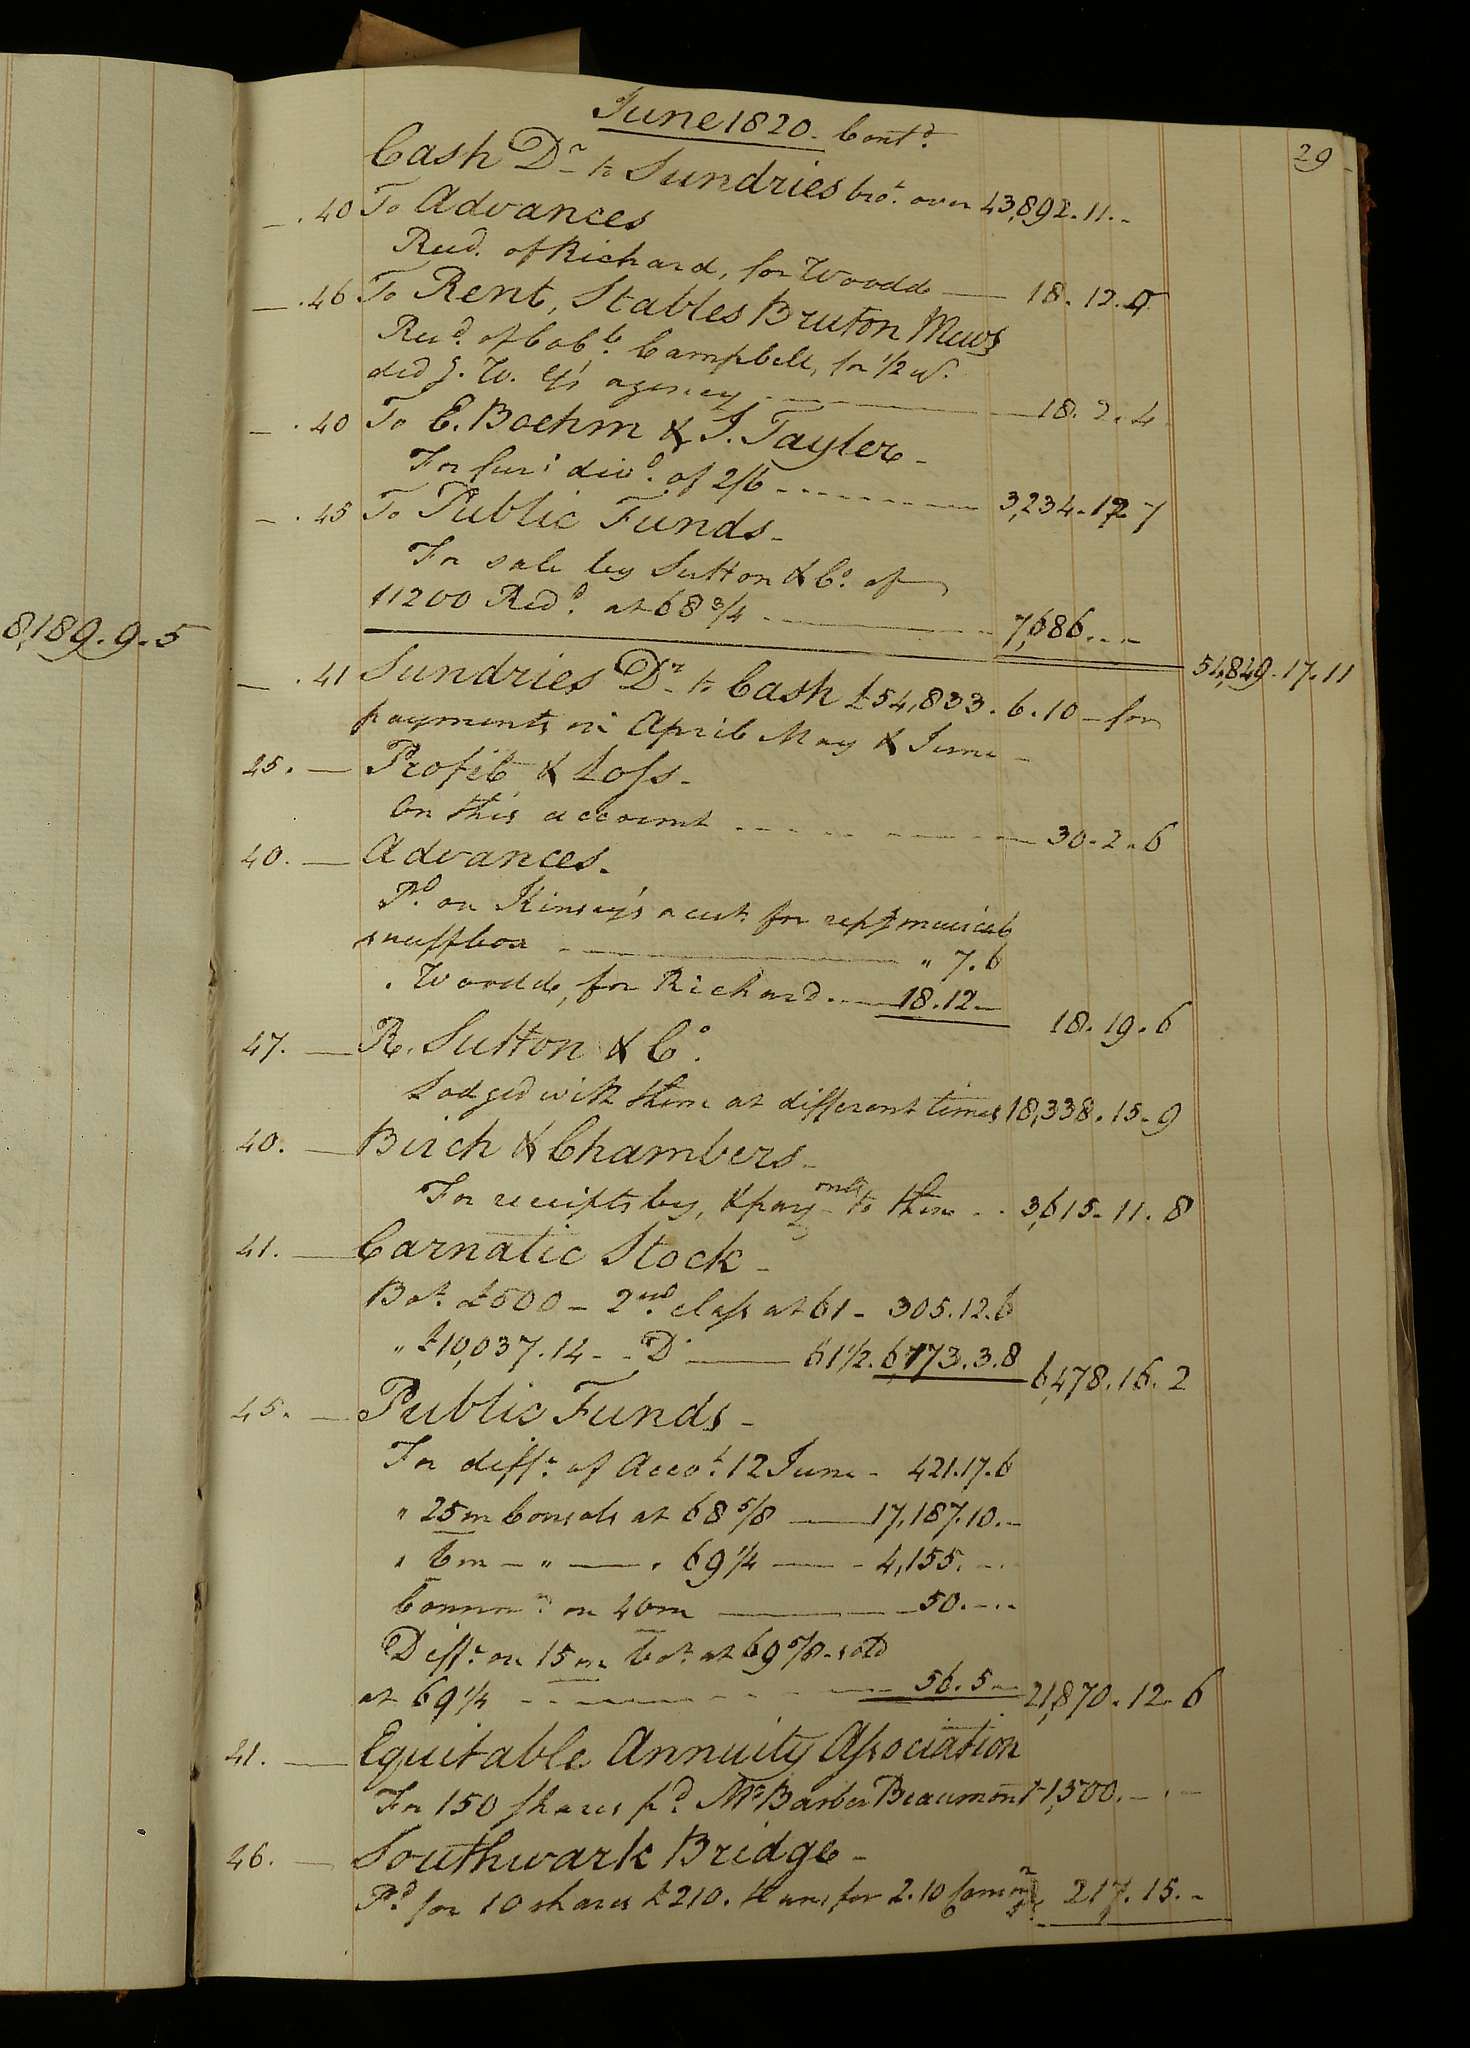 8,189.9.5
June 1820. Contd.
29
Cash Dr. to Sundries brot. over 43,892.11.-
.40 To Advances
Recd. of Richard, for Woodd — 18.12.0
.46 To Rent, Stables Bruton Mews
Recd. of Campbell, for 1/2 yr.
ded J. W. agency — 18.2.4
.40 To E. Boehm & J. Tayler -
For fur: divd. of 2/6 — 3,234.12.7
.45 To Public Funds -
For sale by Sutton & Co. of
11200 Redd. at 68 3/4 — 7,686.-.-
54,849.17.11
.41 Sundries Dr. to Cash £54,833.6.10 - for
payments in April May & June -
25. — Profit & Loss -
On this account — 30.2.6
40. — Advances.
Pd. on Kinsey's acct. for repg. musical
snuffbox — " 7.6
. Woodd, for Richard — 18.12 —
18.19.6
47. — R. Sutton & Co.
Lodged with them at different times 18,338.15.9
40. — Birch & Chambers -
For receipts by, & payments to them .. 3,615.11.8
41. — Carnatic Stock -
Bot. £500 - 2nd. class at 61 - 305.12.6
" £10,037.14 - - Do. — 61 1/2. 6,173.3.8 6,478.16.2
45. — Public Funds -
For diffce. of Accot. 12 June - 421.17.6
" 25m Consols at 68 5/8 — 17,187.10.-
" 6m - " — . 69 1/4 — 4,155.-.
Common. on 40m — 50.-..
Diffce. on 15m bot. at 69 5/8 - sold
at 69 1/4 — 56.5 — 21,870.12.6
41. — Equitable Annuity Association
For 150 shares pd. Mr. Barber Beaumont 1,500.-.-
46. — Southwark Bridge -
Pd. for 10 shares £210. transfer 2.10 Common. 5. 217.15.-